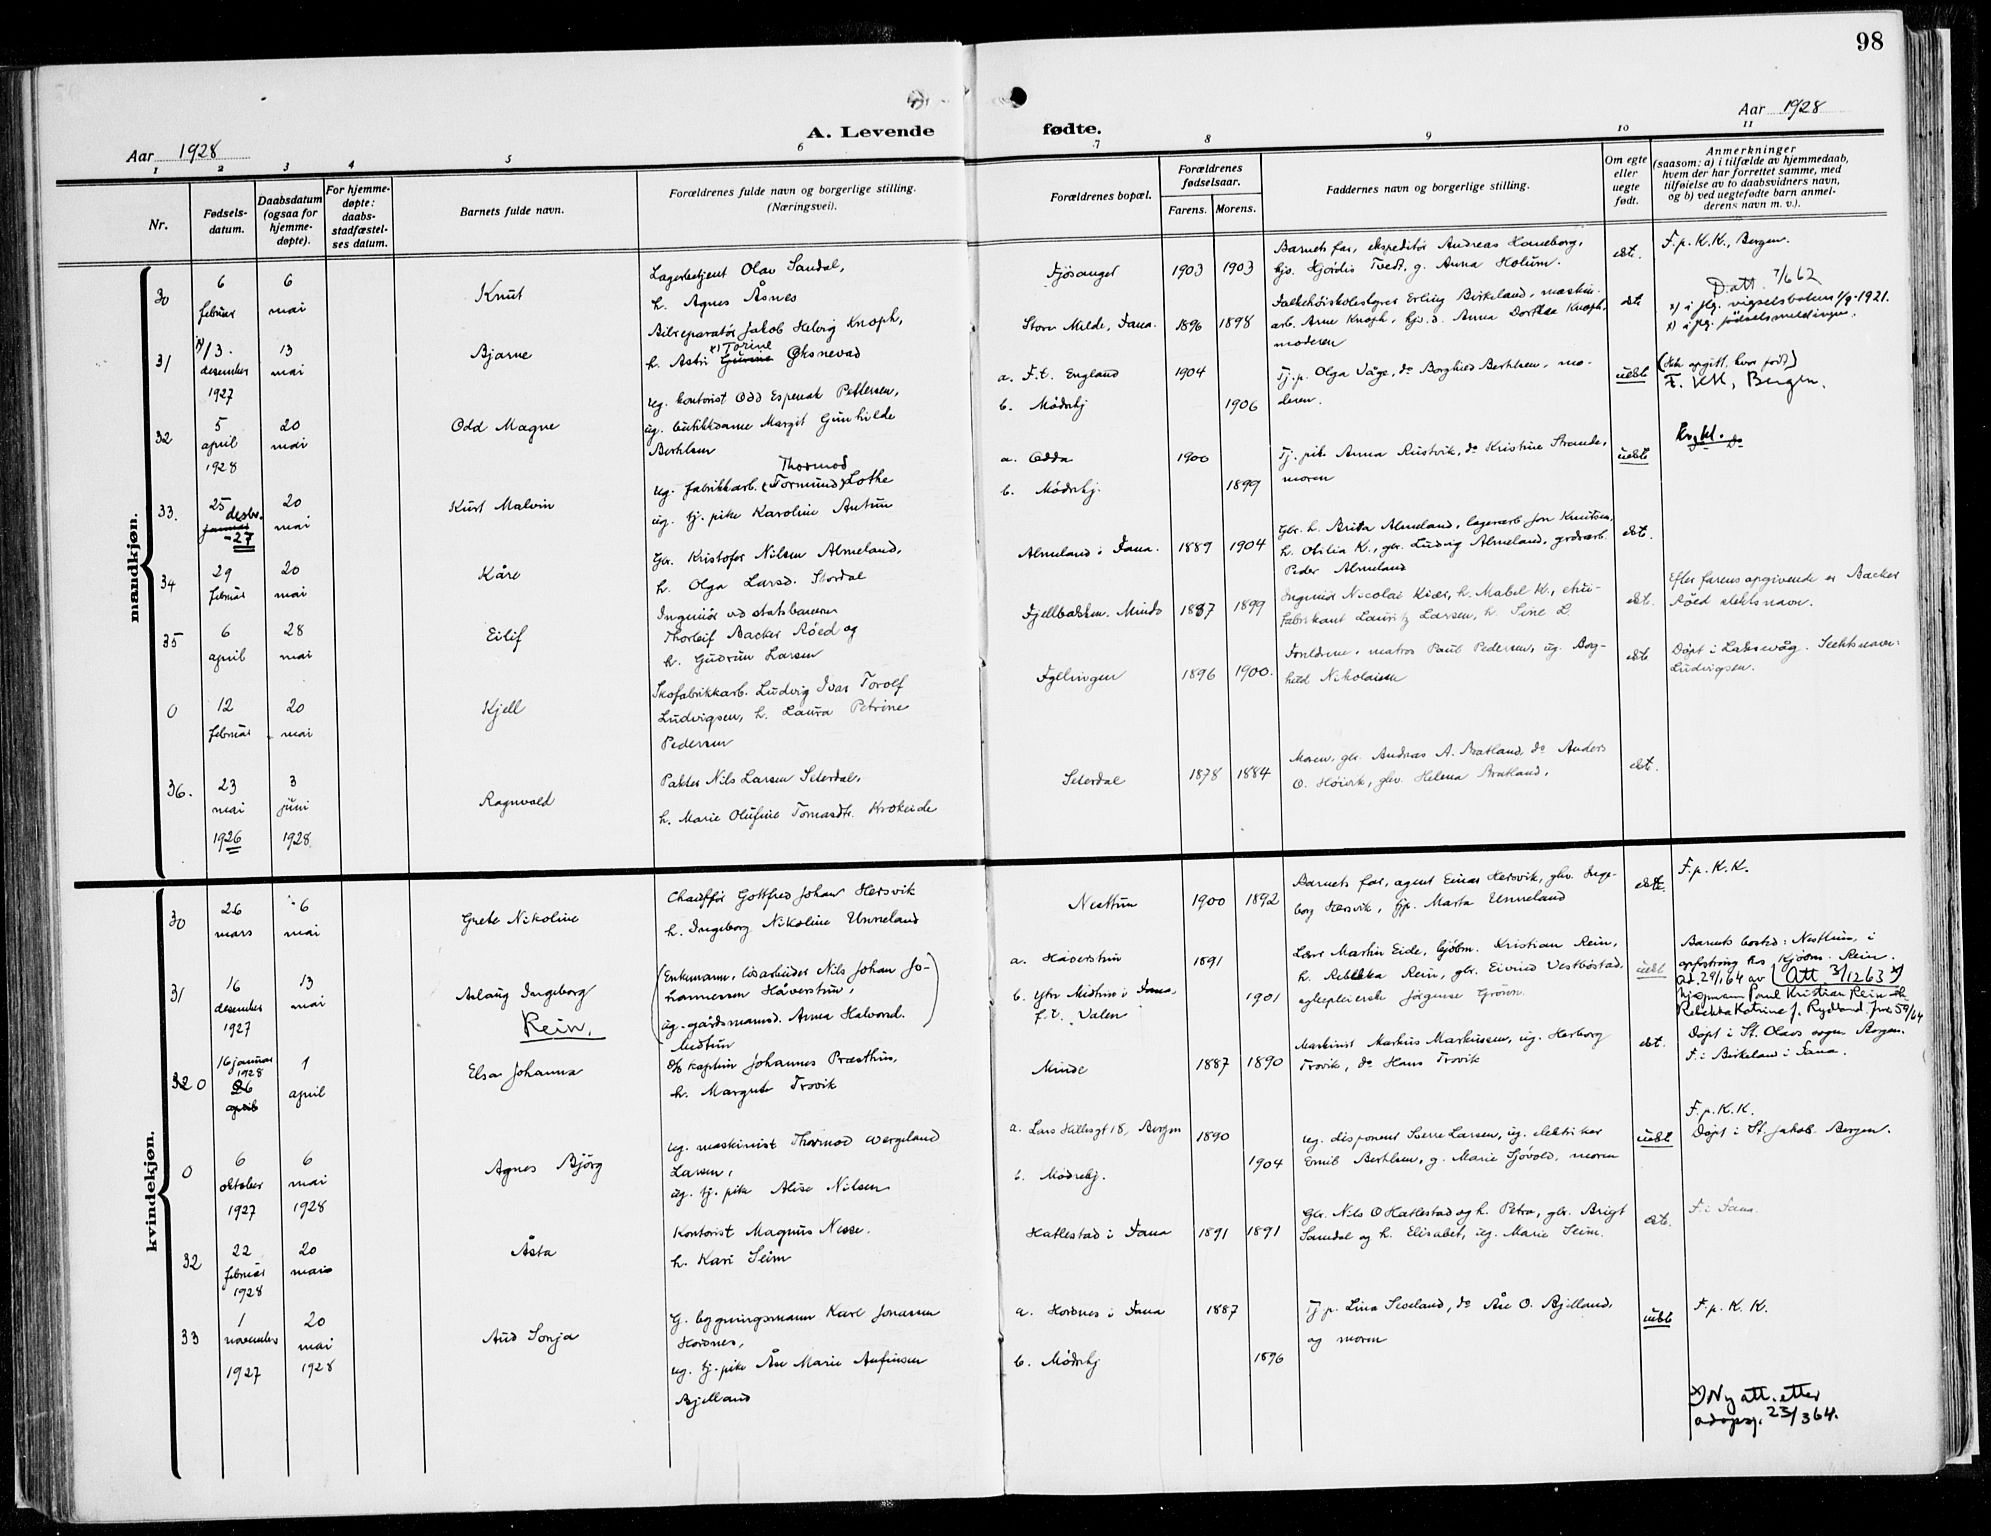 98
Aar 1928
A. Levende
fødte.
Aar 1928
1 2 3 4 5 6 7 8 9 10 11
Nr.
Fødsels-
datum.
Daabsdatum
(ogsaa for
hjemme-
døpte).
For hjemme-
døpte:
daabs-
stadfæstel-
ses datum.
Barnets fulde navn.
Forældrenes fulde navn og borgerlige stilling.
(Næringsvei).
Forældrenes bopæl.
Forældrenes
fødselsaar.
Farens. Morens.
Faddernes navn og borgerlige stilling.
Om egte
eller
uegte
født.
Anmerkninger
(saasom: a) i tilfælde av hjemmedaab,
hvem der har forrettet samme, med
tilføielse av to daabsvidners navn,
og b) ved uegtefødte barn anmel-
derens navn m. v.).
mandkjøn.
30
6
februar
6
mai
Knut
Lagerbetjent Olav Sandal,
h. Agnes Åsnes
Fjøsanger
1903 1903
Barnets far, ekspeditør Andreas Honeborg,
hjs. Hjørdis Tvedt, g. Anna Holum.
ekte.
F. p. K. K., Bergen.
31
x)13.
desember
1927
13
mai
Bjarne
Bilreparatør Jakob Helvig Knoph,
h. Astri x) Torine Øksnevad
Store Milde, Fana.
1896 1898
Folkehøiskolestyrer Erling Birkeland, maskin-
arb. Arne Knoph, hjv. d. Anna Dorthea Knoph,
moderen
ekte
Datt. 7/6 62
x) i flg. vigselsboken 1/9-1921.
x) i flg. fødselsmeldingen.
32
5
april
1928
20
mai
Odd Magne
ug. kontorist Odd Espenak Pettersen,
ug. butikkdame Margit Gunhilde
Berthlsen
a. F. t. England
b. Mødrehj
1904
1906
Tj. p. Olga Våge, do Borghild Berthlsen, mo-
deren.
uekte
(Ikke opgitt, hvor født)
F. KK, Bergen.
33.
25 desbr.
-27
20
mai
Kurt Malvin
ug. fabrikkarb. (Tormund) Lothe
Thormod
ug. tj. pike Karoline Antun
a. Odda
b. Mødrehj.
1900
1899
Tj. pike Anna Rustvik, do Kristine Strande,
moren
uekte
do
34
29
februar
20
mai
Kåre
Gbr. Kristofer Nilsen Almeland,
h. Olga Larsd. Stordal
Almeland i Fana.
1889 1904
Gbr. h. Brita Almeland, lagerarb Jon Knutsen,
h. Otilia K., gbr. Ludvig Almeland, grdarb.
Peder Almeland
ekte.
35
6
april
28
mai
Eilif
Ingeniør ved statsbanene
Thorleif Backer Røed og
h. Gudrun Larsen
Fjellbakken. Minde
1887 1899
Ingeniør Nicolai Kiær, h. Mabel K., etui-
fabrikant Lauritz Larsen, h. Sine L
ekte.
Efter farens opgivende er Backer
Røed slektsnavn.
0
12
februar
20
mai
Kjell
Skofabrikkarb. Ludvig Ivar Torolf
Ludvigsen, h. Laura Petrine
Pedersen
Fyllingen
1896 1900.
Foreldrene, matros Paul Pedersen, ug. Borg-
hild Nikolaisen
ekte
Døpt i Laksevåg. Slektsnavn:
Ludvigsen.
36.
23
mai
1926
3
juni
1928
Ragnvald
Pakter Nils Larsen Seterdal,
h. Marie Olufine Tomasdtr. Krokeide
Seterdal
1878 1884
Moren, gbr. Andreas A. Bratland, do Anders
O. Høivik, gbv. Helena Bratland,
ekte.
kvindekjøn.
30
26
mars
6
mai
Grete Nikoline
Chauffør Gottfred Johan Hersvik
h. Ingeborg Nikoline Unneland
Nesttun
1900 1892
Barnets far, agent Einar Hersvik, gbv. Inge-
borg Hersvik, tjp. Marta Unneland
ekte.
F. p. K. K.
31
16
desember
1927
13
mai
Aslaug Ingeborg
Rein.
(Enkemann, løsarbeider Nils Johan Jo-
hannessen Håverstun,
ug. gårdsmannsd. Anna Halvorsd.
Midtun)
a. Håverstun
b. Ytre Midtun i Fana,
f. t. Valen
1891
1901
Lærer Martin Eide, kjøbm. Kristian Rein,
h. Rebekka Rein, gbr. Eivind Vestbøstad,
sykepleierske Jørgense Grønn.
uekt
Barnets bosted: Nesttun, i
opfostring hos kjøbm. Rein.
ad. 29/1 64 av (Att 3/12 63 x)
kjøpmann Paul Kristian Rein
Rebekka Katrine f. Rydland. Jnr 59/64
32 0
16 januar
1928
26
april
1
april
Elsa Johanna
kaptein Johannes Præsthus,
h. Margrete Trovik
Minde
1887 1890
Maskinist Markus Markussen, ug. Herborg
Trovik, do Hans Trovik
ekt.
Døpt i St. Olavs sogn. Bergen.
F. i Birkeland i Fana.
0
6
oktober
1927
6
mai
1928
Agnes Bjørg
ug. maskinist Thormod Wergeland
Larsen,
ug. tj. pike Alise Nilsen
a. Lars Hillesgt 18, Bergen
b. Mødrehj.
1890
1904
ug. disponent Sverre Larsen, ug. elektriker
Emil Berthlsen, g. Marie Sjøvold, moren
uekt
F. p. K. K.
Døpt i St. Jakob. Bergen.
32
22
februar
1928
20
mai
Åsta
Kontorist Magnus Nesse.
h. Kari Seim
Hatlestad i Fana
1891 1891
Gbr. Nils O Hatlestad og h. Petra, gbr. Brigt
Sandal og h. Elisabet, ug. Marie Seim.
ekte.
F. i Fana.
33
1
november
1927
20
mai
1928
Aud Sonja
G. bygningsmann Karl Jonassen
Hordnes,
ug. tj. pike Åse Marie Anfinsen
Bjelland
a. Hordnes i Fana
b. Mødrehj
1887
1896
Tj p. Lina Sveland, do Åse O. Bjelland,
og moren
uekte
F. p. K. K.
x) Ny att. etter
adopsj. 23/3 64.